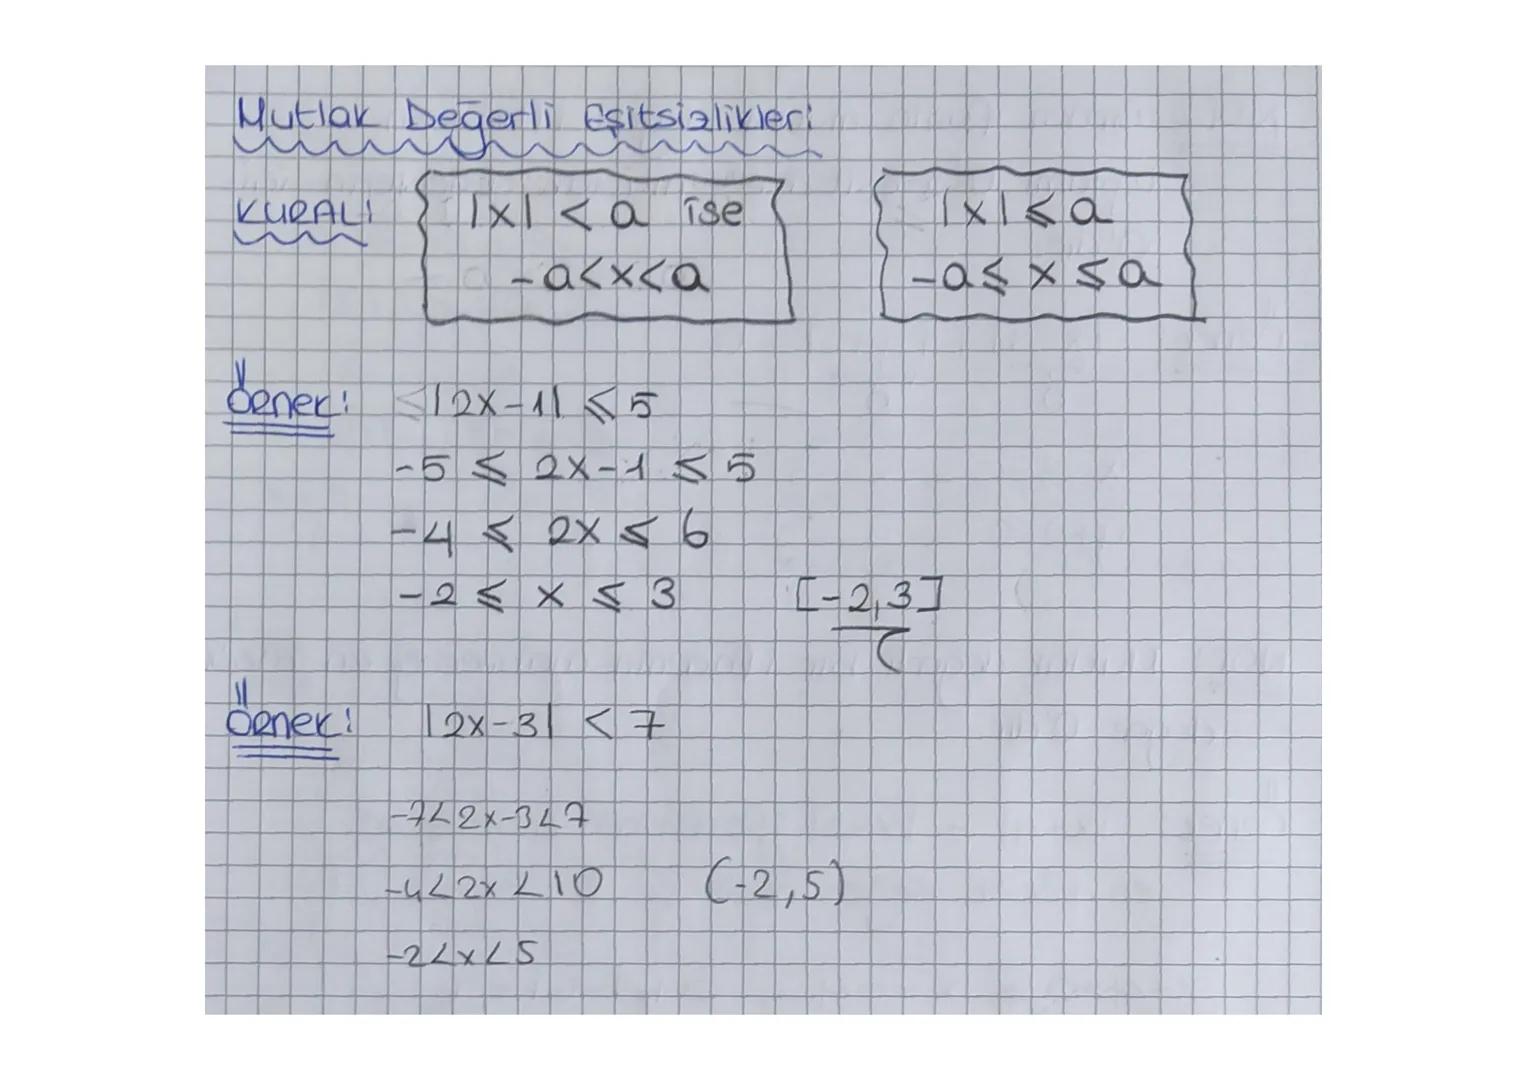 Mutlak Değerli Eşitsizlikleri
KURAL! |x| < a ise |x| ≤ a
-a<x<a -a ≤ x ≤ a
Örnek! ≤|2x-1| ≤ 5
-5 ≤ 2x-1 ≤ 5
-4 ≤ 2x ≤ 6
-2 ≤ x ≤ 3 [-2,3]
Örnek! |2x-3| < 7
-7<2x-3<7
-4<2x<10 (-2,5)
-2<x<5